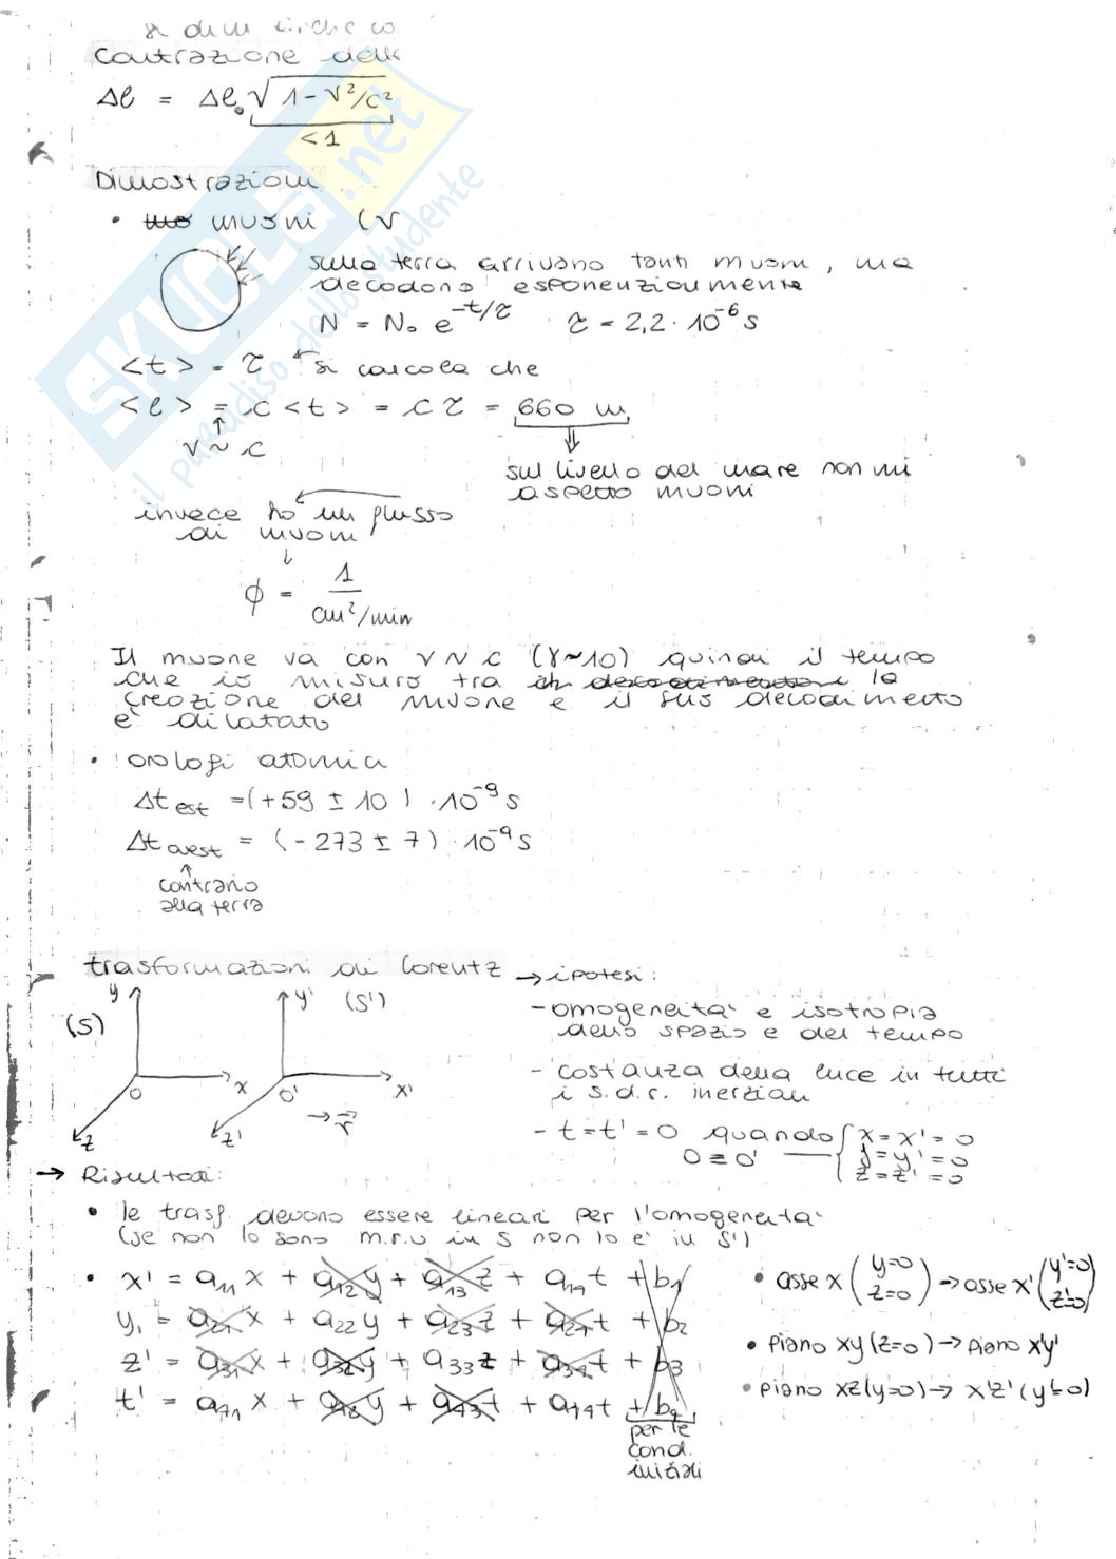 Contrazione delle
Δl = Δl₀ √1-v²/c²
<1
Dimostrazioni
• muoni (v
sulla terra arrivano tanti muoni, ma
decadono esponenzialmente
N = N₀ e^(-t/τ)   τ = 2,2 · 10⁻⁶ s
<t> = τ ← si calcola che
<l> = c <t> = c τ = 660 m
↑
v ~ c
⇓
sul livello del mare non mi
aspetto muoni
invece ho un flusso
di muoni
↓
ϕ = 1 / cm²/min
Il muone va con v ~ c (γ~10) quindi il tempo
che io misuro tra la
creazione del muone e il suo decadimento
è dilatato
• orologi atomici
Δt est = (+59 ± 10) · 10⁻⁹ s
Δt ovest = (-273 ± 7) · 10⁻⁹ s
↑
contrario
alla terra
trasformazioni di Lorentz → ipotesi:
(S) y x z O
(S') y' x' z' O' → v
- omogeneità e isotropia
dello spazio e del tempo
- costanza della luce in tutti
i s.d.r. inerziali
- t = t' = 0 quando { x = x' = 0
O ≡ O' — y = y' = 0
z = z' = 0
→ Risultati:
• le trasf. devono essere lineari per l'omogeneità
(se non lo sono m.r.u in S non lo è in S')
• x' = a₁₁ x + a₁₂ y + a₁₃ z + a₁₄ t + b₁
y₁ = a₂₁ x + a₂₂ y + a₂₃ z + a₂₄ t + b₂
z' = a₃₁ x + a₃₂ y + a₃₃ z + a₃₄ t + b₃
t' = a₄₁ x + a₄₂ y + a₄₃ t + a₄₄ t + b₄
per le
cond.
iniziali
• asse x (y=0 z=0) → asse x' (y'=0 z'=0)
• piano xy (z=0) → piano x'y'
• piano xz (y=0) → x'z' (y'=0)
SKUOLA.net
il paradiso dello studente